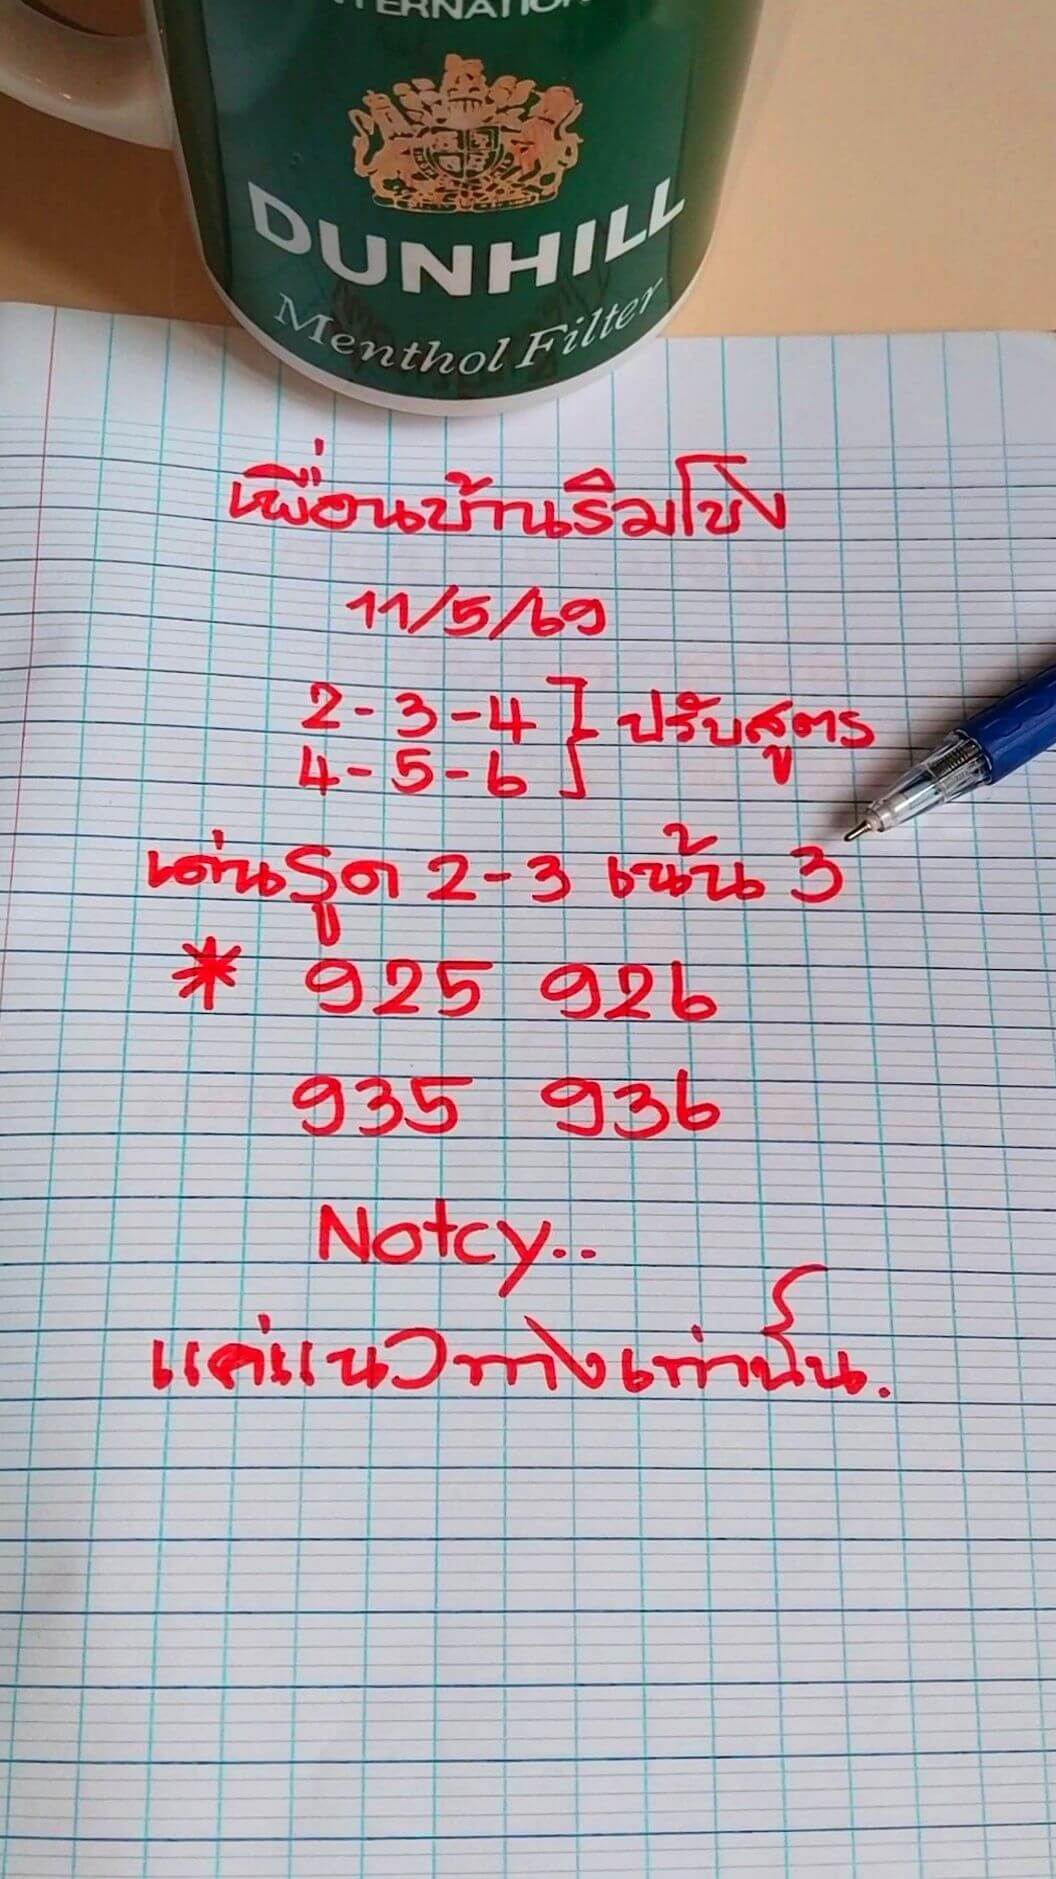 INTERNATION
DUNHILL
Menthol Filter
เพื่อนบ้านริมโขง
11/5/69
2-3-4
4-5-6 } ปรับสูตร
เด่นรูด 2-3 เน้น 3
* 925 926
935 936
Notcy..
แค่แนวทางเท่านั้น.